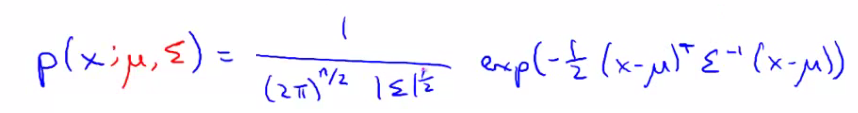 p(x; μ, Σ) = 1 / ((2π)^(n/2) |Σ|^(1/2)) exp(-1/2 (x-μ)^T Σ^(-1) (x-μ))